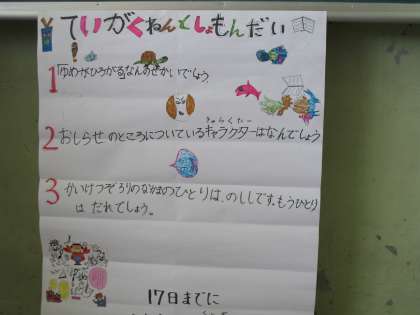 ていがくねんとしょもんだい
1「ゆめがひろがる」なんのせかいでしょう。
きゃらくたー
2 おしらせ のところについているキャラクターはなんでしょう
3 かいけつゾロリのなかまのひとりは、のししです。もうひとり
は だれでしょう。
17日までに